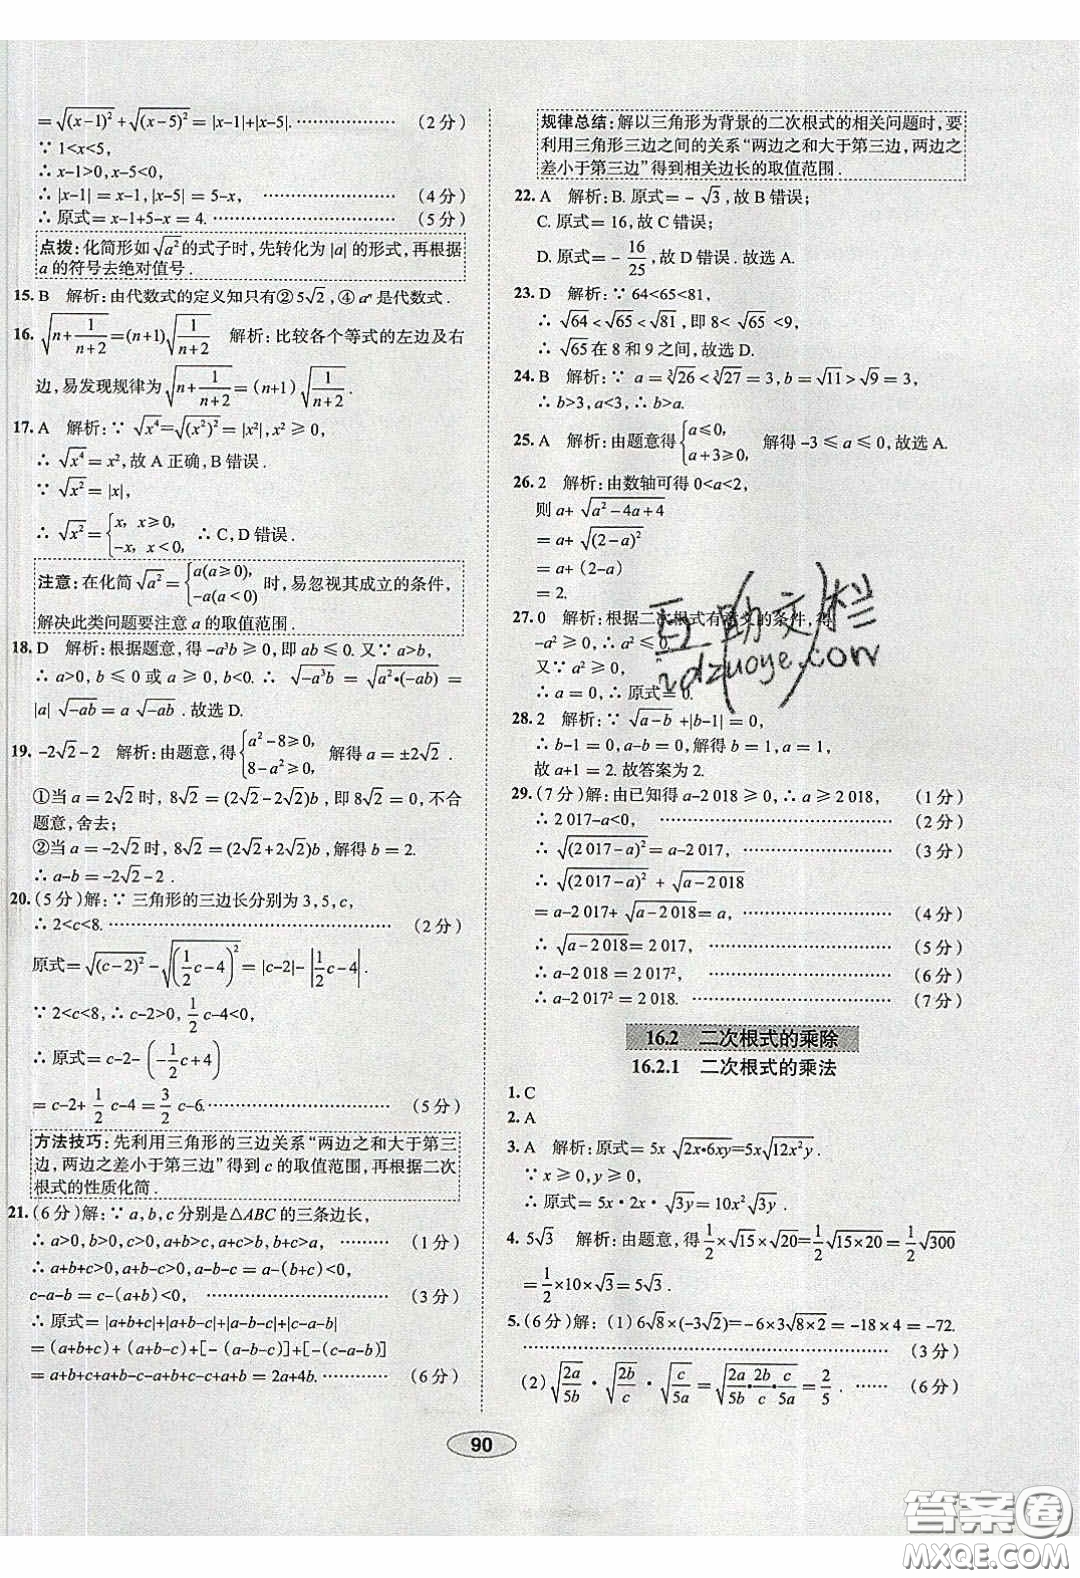 =√(x-1)²+√(x-5)²=|x-1|+|x-5|.………………(2分)
∵ 1<x<5,
∴ x-1>0,x-5<0,
∴ |x-1|=x-1,|x-5|=5-x,………………(4分)
∴ 原式=x-1+5-x=4.………………(5分)
点拨:化简形如√a²的式子时,先转化为|a|的形式,再根据
a的符号去绝对值号.
15.B 解析:由代数式的定义知只有②5√2,④aⁿ是代数式.
16.√(n+1/(n+2))=(n+1)√(1/(n+2)) 解析:比较各个等式的左边及右
边,易发现规律为√(n+1/(n+2))=(n+1)√(1/(n+2)).
17.A 解析:∵ √x⁴=√(x²)²=|x²|,x²≥0,
∴ √x⁴=x²,故A正确,B错误.
∵ √x²=|x|,
∴ √x²={x, x≥0, -x, x<0, ∴ C,D错误.
注意:在化简√a²={a(a≥0), -a(a<0) 时,易忽视其成立的条件,
解决此类问题要注意a的取值范围.
18.D 解析:根据题意,得-a³b≥0,即ab≤0.又∵ a>b,
∴ a>0,b≤0或a≥0,b<0.∴ √(-a³b)=√(a²·(-ab))=
|a|√(-ab)=a√(-ab).故选D.
19.-2√2-2 解析:由题意,得{a²-8≥0, 8-a²≥0, 解得a=±2√2.
①当a=2√2时,8√2=(2√2-2√2)b,即8√2=0,不合
题意,舍去;
②当a=-2√2时,8√2=(2√2+2√2)b,解得b=2.
∴ a-b=-2√2-2.
20.(5分)解:∵ 三角形的三边长分别为3,5,c,
∴ 2<c<8.………………(2分)
原式=√(c-2)²-√(1/2c-4)²=|c-2|-|1/2c-4|.
∵ 2<c<8,∴ c-2>0,1/2c-4<0,
∴ 原式=c-2-(-1/2c+4)
=c-2+1/2c-4=3/2c-6.………………(5分)
方法技巧:先利用三角形的三边关系“两边之和大于第三
边,两边之差小于第三边”得到c的取值范围,再根据二次
根式的性质化简.
21.(6分)解:∵ a,b,c分别是△ABC的三条边长,
∴ a>0,b>0,c>0,a+b>c,a+c>b,b+c>a,………(1分)
∴ a+b+c>0,a+c-b>0,a-b-c=a-(b+c)<0,
c-a-b=c-(a+b)<0,………………(3分)
∴ 原式=|a+b+c|+|a+c-b|+|a-b-c|+|c-a-b|
=(a+b+c)+(a+c-b)+[-(a-b-c)]+[-(c-a-b)]
=a+b+c+a+c-b-a+b+c-c+a+b=2a+4b.………(6分)
规律总结:解以三角形为背景的二次根式的相关问题时,要
利用三角形三边之间的关系“两边之和大于第三边,两边之
差小于第三边”得到相关边长的取值范围.
22.A 解析:B.原式=-√3,故B错误;
C.原式=16,故C错误;
D.原式=-16/25,故D错误.故选A.
23.D 解析:∵ 64<65<81,
∴ √64<√65<√81,即8<√65<9,
∴ √65在8和9之间,故选D.
24.B 解析:∵ a=∛26<∛27=3,b=√11>√9=3,
∴ b>3,a<3,∴ b>a.
25.A 解析:由题意得{a≤0, a+3≥0, 解得-3≤a≤0,故选A.
26.2 解析:由数轴可得0<a<2,
则a+√(a²-4a+4)
=a+√(2-a)²
=a+(2-a)
=2.
27.0 解析:根据二次根式有意义的条件,得
-a²≥0,∴ a²≤0.
又∵ a²≥0,
∴ a=0,∴ 原式=0.
28.2 解析:∵ √(a-b)+|b-1|=0,
∴ b-1=0,a-b=0,解得b=1,a=1,
故a+1=2.故答案为2.
29.(7分)解:由已知得a-2 018≥0,∴ a≥2 018,(1分)
∴ 2 017-a<0,………………(2分)
∴ √(2 017-a)²=a-2 017,………………(3分)
∴ √(2 017-a)²+√(a-2 018)
=a-2 017+√(a-2 018)=a,………………(4分)
∴ √(a-2 018)=2 017,………………(5分)
∴ a-2 018=2 017²,………………(6分)
∴ a-2 017²=2 018.………………(7分)
16.2 二次根式的乘除
16.2.1 二次根式的乘法
1.C
2.A
3.A 解析:原式=5x√(2x·6xy)=5x√(12x²y)
∵ x≥0,y≥0,
∴ 原式=5x·2x·√3y=10x²√3y.
4.5√3 解析:由题意,得1/2×√15×√20=1/2√(15×20)=1/2√300
=1/2×10×√3=5√3.
5.(6分)解:(1)6√8×(-3√2)=-6×3√(8×2)=-18×4=-72.
………………(3分)
(2)√(2a/5b)·√(2b/c)·√(c/5a)=√(2a/5b·2b/c·c/5a)=2/5.……(6分)
90
互助文栏
idzuoye.com
答案圈
MXQE.COM